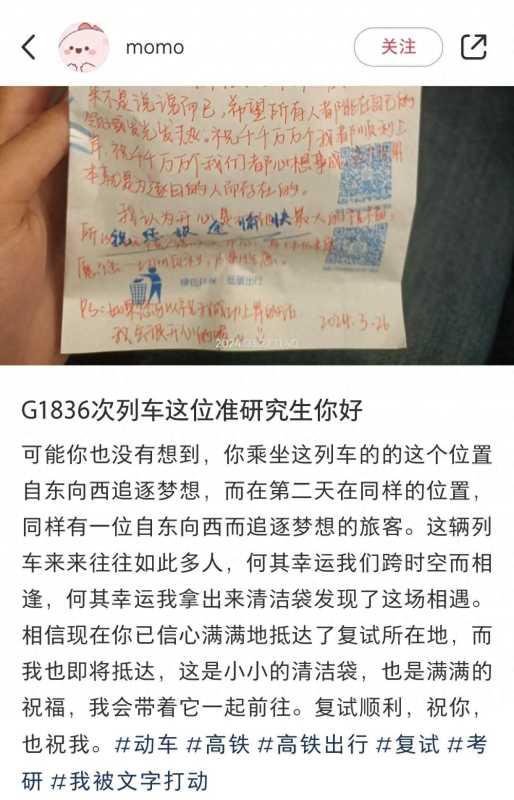 momo
关注
来不是说说而已,希望所有人都能在自己的
发光发热。祝千千万万个我都顺利上
岸,祝千千万万个我们都心想事成,
本就是为逐日的人而存在的。
我认为开心是
最大的
所以祝
绿色环保 低碳出行
PS:如果
我会很开心的
2024.3.26
G1836次列车这位准研究生你好
可能你也没有想到,你乘坐这列车的的这个位置
自东向西追逐梦想,而在第二天在同样的位置,
同样有一位自东向西而追逐梦想的旅客。这辆列
车来来往往如此多人,何其幸运我们跨时空而相
逢,何其幸运我拿出来清洁袋发现了这场相遇。
相信现在你已信心满满地抵达了复试所在地,而
我也即将抵达,这是小小的清洁袋,也是满满的
祝福,我会带着它一起前往。复试顺利,祝你,
也祝我。#动车 #高铁 #高铁出行 #复试 #考
研 #我被文字打动